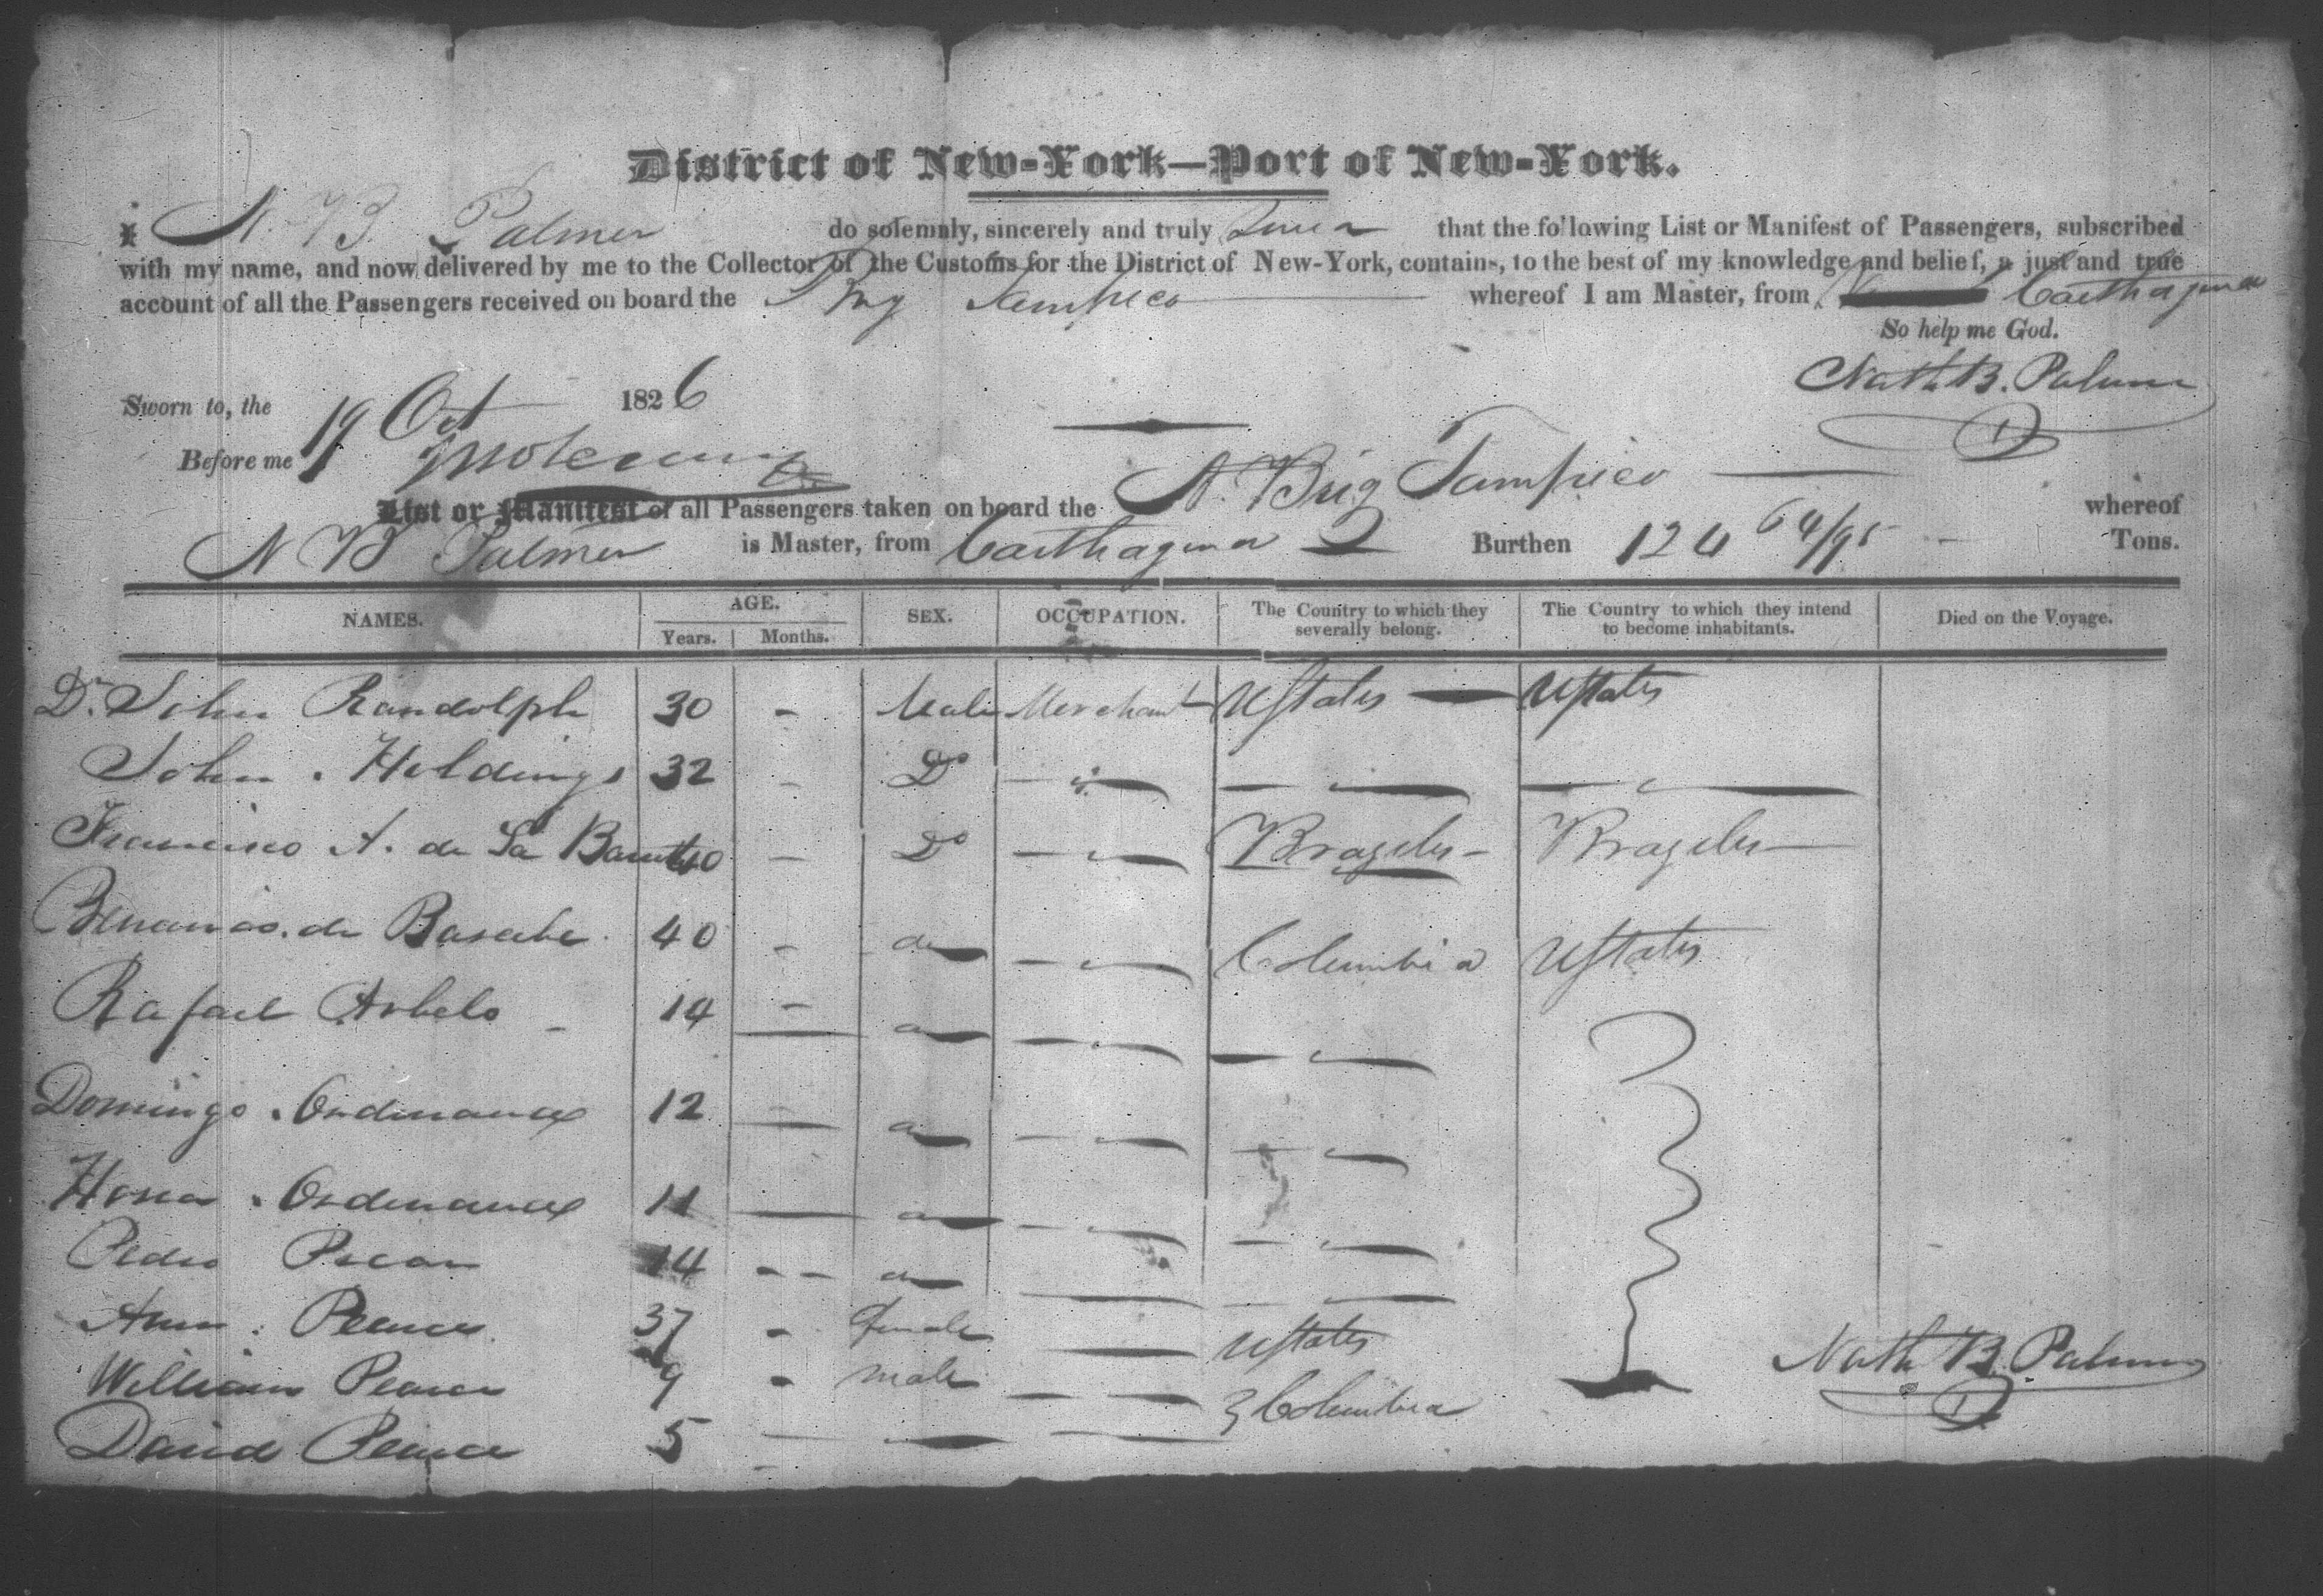 District of New-York—Port of New-York.
I N. B. Palmer do solemnly, sincerely and truly Swear that the following List or Manifest of Passengers, subscribed
with my name, and now delivered by me to the Collector of the Customs for the District of New-York, contains, to the best of my knowledge and belief, a just and true
account of all the Passengers received on board the Brig Tampico whereof I am Master, from Carthagena
So help me God.
Nathl B. Palmer
Sworn to, the 19 Oct 1826
Before me
List or Manifest of all Passengers taken on board the A. Brig Tampico whereof
N B Palmer is Master, from Carthagena Burthen 124 64/95 Tons.
NAMES. AGE. Years. Months. SEX. OCCUPATION. The Country to which they severally belong. The Country to which they intend to become inhabitants. Died on the Voyage.
Dr. John Randolph 30 - Male Merchant UStates — UStates
John . Holdings 32 - Do
Francisco A. de La 40 - Do Brazeles - Brazeles
de Basabe 40 - do Columbia UStates
Rafael Arbelo - 14 - do
Domingo . Ordenanex 12 - do
Hosea . Ordenanex 11 do
Pedro 14 - - do
Ann . Pearce 37 - female UStates
William Pearce 9 - male Columbia
David Pearce 5
Nathl B. Palmer